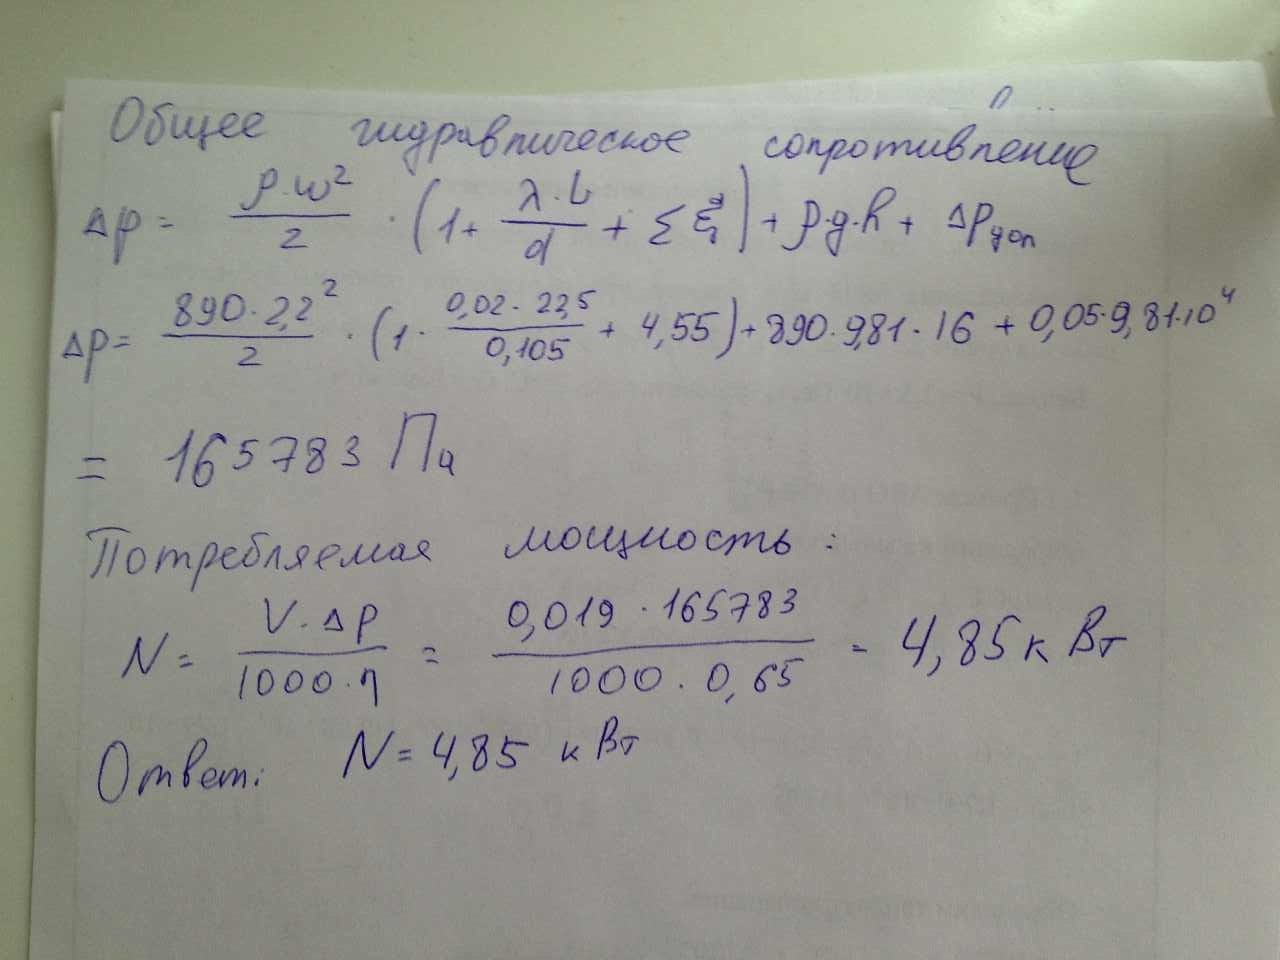 Общее гидравлическое сопротивление
Δp = ρ·w²/2 · (1 + λ·L/d + Σξ) + ρ·g·h + Δpдоп
Δp = 890·2,2²/2 · (1 · 0,02·22,5/0,105 + 4,55) + 890·9,81·16 + 0,05·9,81·10⁴
= 165783 Па
Потребляемая мощность:
N = V·Δp/1000·η = 0,019·165783/1000·0,65 = 4,85 кВт
Ответ: N = 4,85 кВт